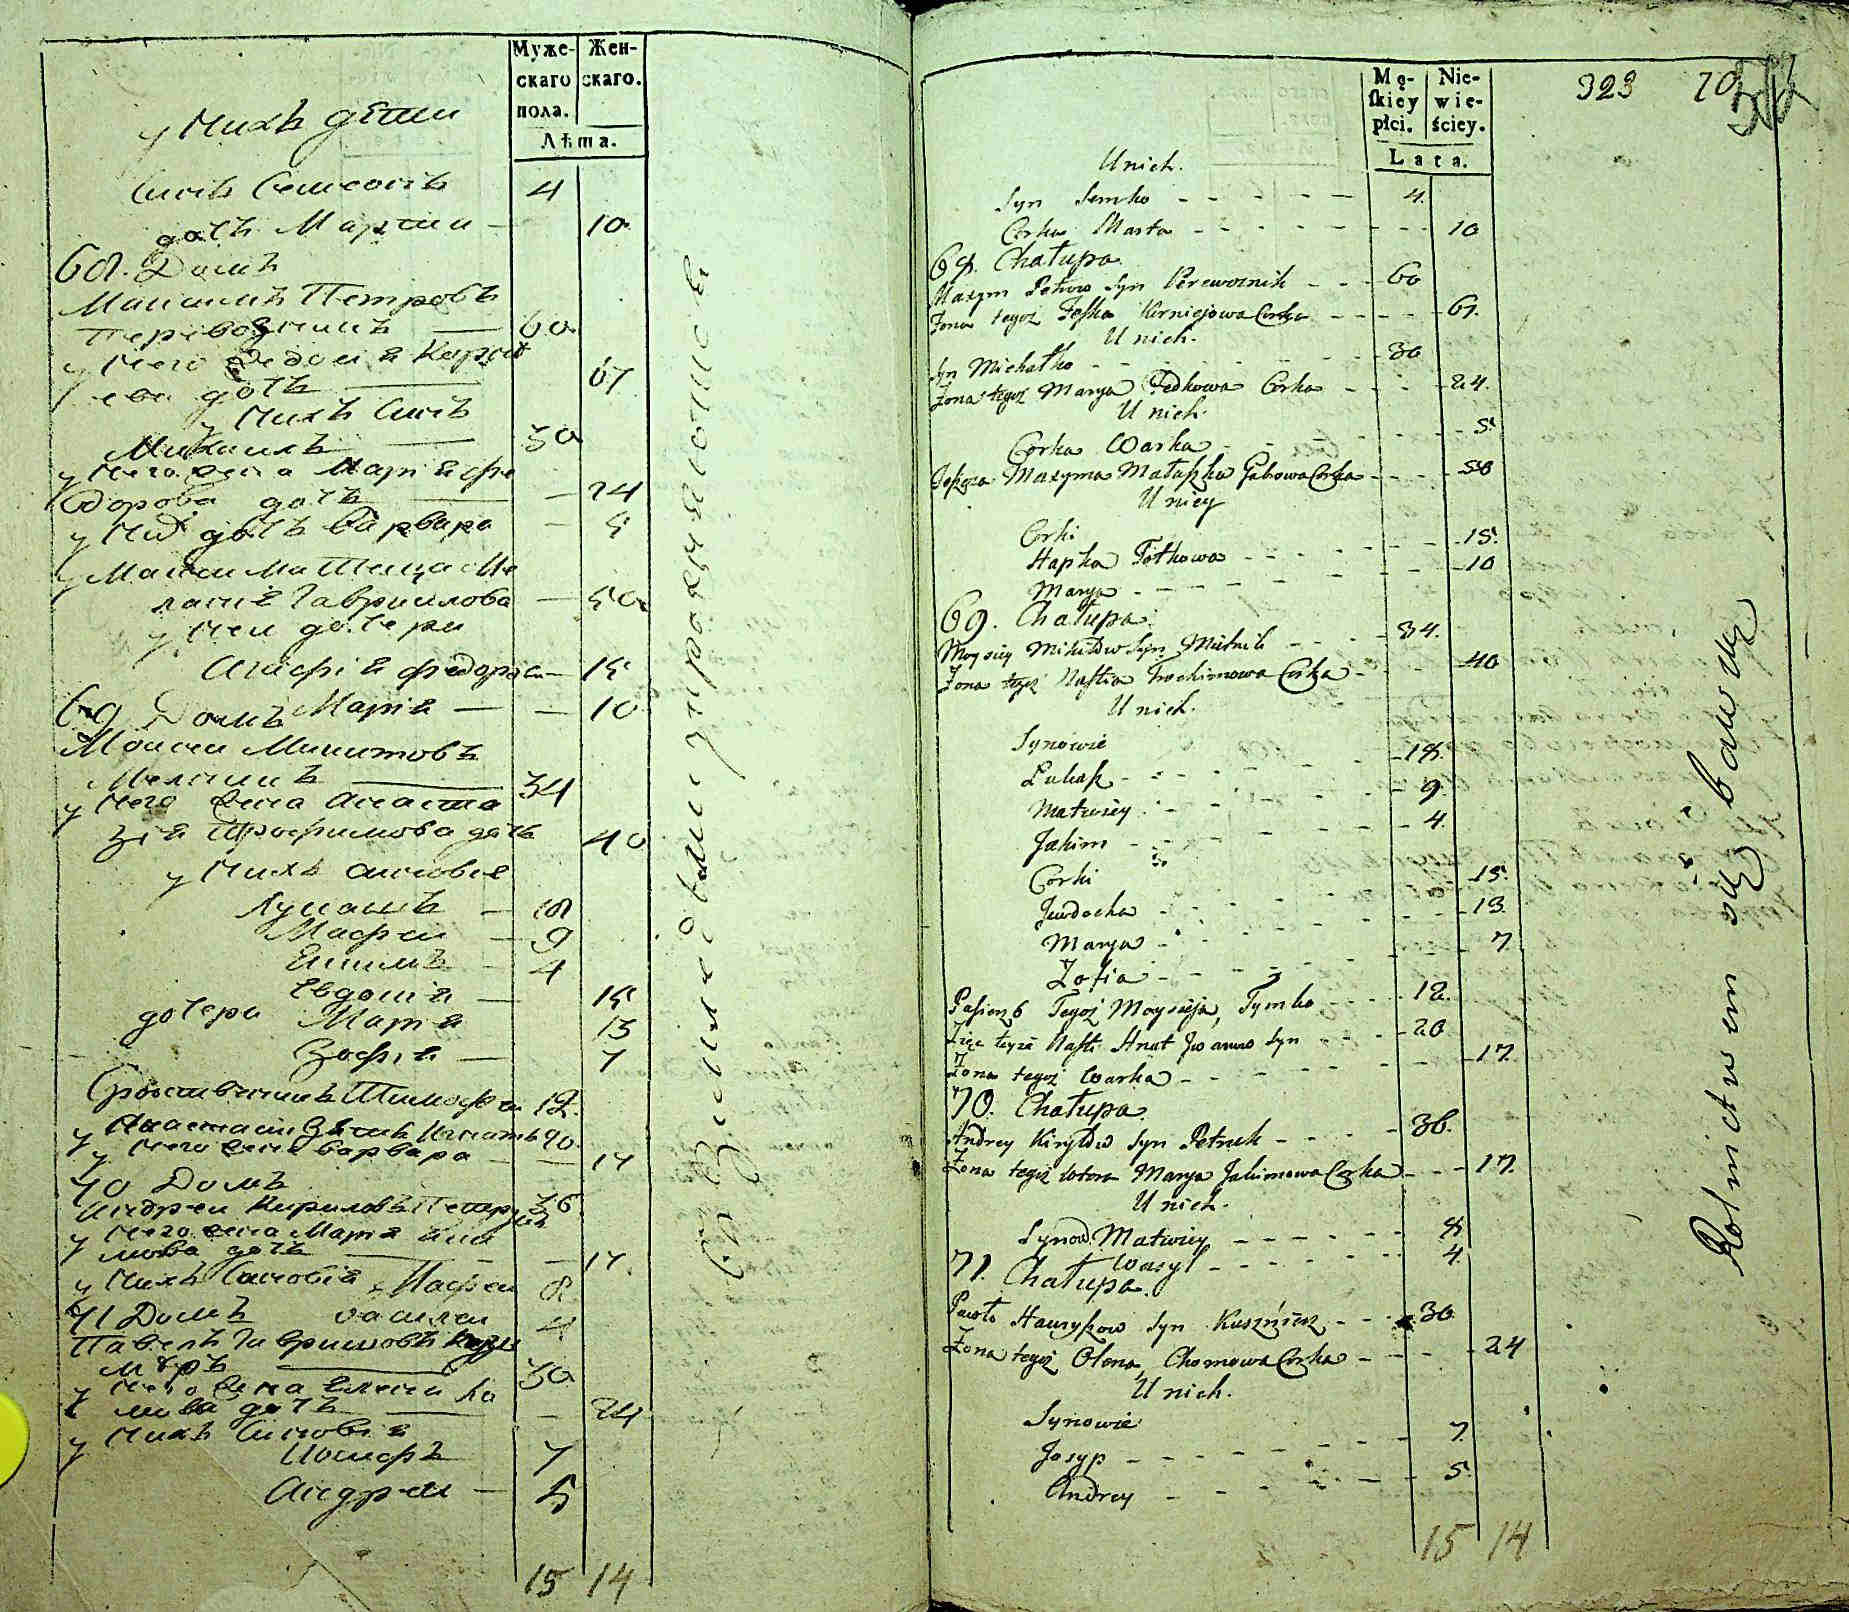 Муже-
скаго
пола.
Жен-
скаго.
Лѣта.
у нихъ дѣти
Синъ Семионъ 4
дочъ Марта 10
68. Домъ
Максимъ Петровъ
Перевозникъ 60
у него жена Феодосія Корнѣ
ева дочъ 67
у нихъ Синъ
Михаилъ 30
у него жена Марія Фе
дорова дочъ 24
у них дочъ Варвара 5
у Максима Теща Ме
ланія Гавриилова 50
у неи дочери
Агафія Федорова 15
Марія 10
69 Домъ
Моисеи Микитовъ
Мелникъ 34
у него жена Анаста
зія Трофимова дочъ 40
у нихъ синовье
Лукашъ 18
Мафеи 9
Екимъ 4
дочери Евдокія 15
Марія 13
Зофія 7
Тимофеи 12.
Анастасіи Зять Игнатъ 20.
у него жена Варвара 17
70 Домъ
Андреи Кириловъ Петрукъ 36
у него жена Марія Яки
мова дочъ 17.
у нихъ Синовія Мафеи 8
Василеи 4
71 Домъ
Павелъ Гавриловъ Кушн
мѣръ 30
у него жена Елена Хо
мова дочъ 24
у нихъ Синовія
Иосифъ 7
Андреи 5
15 14
Mę-
skiey
płci.
Nie-
wie-
ściey.
Lata.
323 70
U nich.
Syn Semko 4.
Corka Marta 10
68. Chałupa
Maxym Petrow Syn Perewoznik 60
Żona tegoż Foska Korniejowa Corka 67.
U nich.
Syn Michałko 30
Żona tegoż Marya Fedkowa Corka 24.
U nich
Corka Warka 5
Teszcza Maxyma Małaszka Gabrowa Corka 50
U niey
Corki
Hapka Fotkowa 15.
Marya 10
69. Chałupa.
Moysiey Mikitow Syn Mielnik 34.
Żona tegoż Nastia Trochimowa Corka 40
U nich.
Synowie
Łukasz 18.
Matwiey 9.
Jakim 4.
Corki
Juwdocha 15.
Marya 13.
Zofia 7
Pasierb Tegoż Moysieja, Tymko 12.
Zięc teyże Nasti Hnat Iwanow Syn 20
Żona tegoż Warka 17.
70. Chałupa
Andrey Kiryłow Syn Petruk 36.
Żona tegoż wtora Marya Jakimowa Corka 17.
U nich.
Synow. Matwiey 8
Wasyl 4.
71. Chałupa.
Pawło Hawryłow Syn Kusznierz 30
Żona tegoż Olena, Chomowa Corka 24
U nich.
Synowie
Josyp 7.
Andrey 5.
15 14
Rolnictwem się bawią